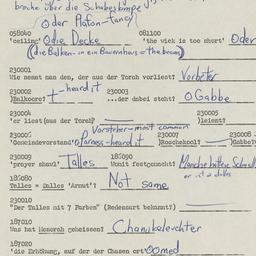 broche über die Schabesbimpe
oder Platon-tance
058080 081100
'ceiling' O die Decke 'the wick is too short' Oder
(die Balken - in ein Bauernhaus = the beams)
230001
Wie nennt man den, der aus der Torah vorliest? Vorbeter
230002 + heard it 230003
)Balkoore? ...der dabei steht? O Gabbe
230004 230005
'er liest(aus der Torah) )leient?
Vorsteher - most common
230006 230007 230008
'Gemeindevorstand' O Parnes - heard it )Roschekool? )Gabbe?
230009 186090
'prayer shawl' Talles Womit festgemacht? Manche hätten Schnall
er ist a dalles
186080
Talles = Dalles 'Armut'? Not same
230010
"Der Talles mit 7 Farben" (Redensart bekannt?)
187010
Was hat Menorah geheissen? Chanikeleuchter
187020
'die Erhöhung, auf der der Chasen ort' O omed